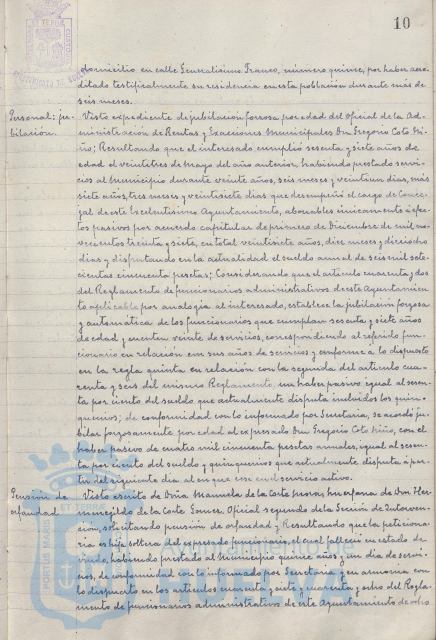 10
domicilio en calle Generalisimo Franco, número quince, por haber acre-
ditado testificalmente su residencia en esta población durante más de
seis meses.
Personal: ju-
bilación.
Visto expediente de jubilación forzosa por edad del Oficial de la Ad-
ministración de Rentas y Exacciones Municipales Don Gregorio Coto Ni-
ño; Resultando que el interesado cumplió sesenta y siete años de
edad el veintitres de mayo del año anterior, habiendo prestado servi-
cios al Municipio durante veinte años, seis meses y veintiun dias, más
siete años, tres meses y veintisiete dias que desempeñó el cargo de Conce-
jal de este Excelentísimo Ayuntamiento, abonables únicamente a efec-
tos pasivos por acuerdo capitular de primero de Diciembre de mil no-
vecientos treinta y siete, en total veintisiete años, diez meses y dieciocho
dias y disfrutando en la actualidad el sueldo anual de seis mil sete-
cientas cincuenta pesetas; Considerando que el articulo cuarenta y dos
del Reglamento de funcionarios administrativos de este Ayuntamien-
to aplicable por analogía al interesado, establece la jubilación forzosa
y automática de los funcionarios que cumplan sesenta y siete años
de edad y cuenten veinte de servicios, correspondiendo al referido fun-
cionario en relación con sus años de servicios y conforme a lo dispuesto
en la regla quinta en relación con la segunda del articulo cua-
renta y seis del mismo Reglamento, un haber pasivo igual al sesen-
ta por ciento del sueldo que actualmente disfruta incluidos los quin-
quenios; de conformidad con lo informado por Secretaría, se acordó ju-
bilar forzosamente por edad al expresado Don Gregorio Coto Niño, con el
haber pasivo de cuatro mil cincuenta pesetas anuales, igual al sesen-
ta por ciento del sueldo y quinquenios que actualmente disfruta a par-
tir del siguiente dia al en que cese en el servicio activo.
Pensión de
orfandad.
Visto escrito de Doña Manuela de la Corte huerfana de Don Her-
menegildo de la Corte Gomez, Oficial segundo de la Sección de Interven-
ción, solicitando pensión de orfandad y Resultando que la peticiona-
ria es hija soltera del expresado funcionario, el cual falleció en estado de
viudo, habiendo prestado al Municipio quince años y un dia de servi-
cios, de conformidad con lo informado por Secretaría y en armonía con
lo dispuesto en los articulos cuarenta y siete y cuarenta y ocho del Regla-
mento de funcionarios administrativos de este Ayuntamiento de ocho